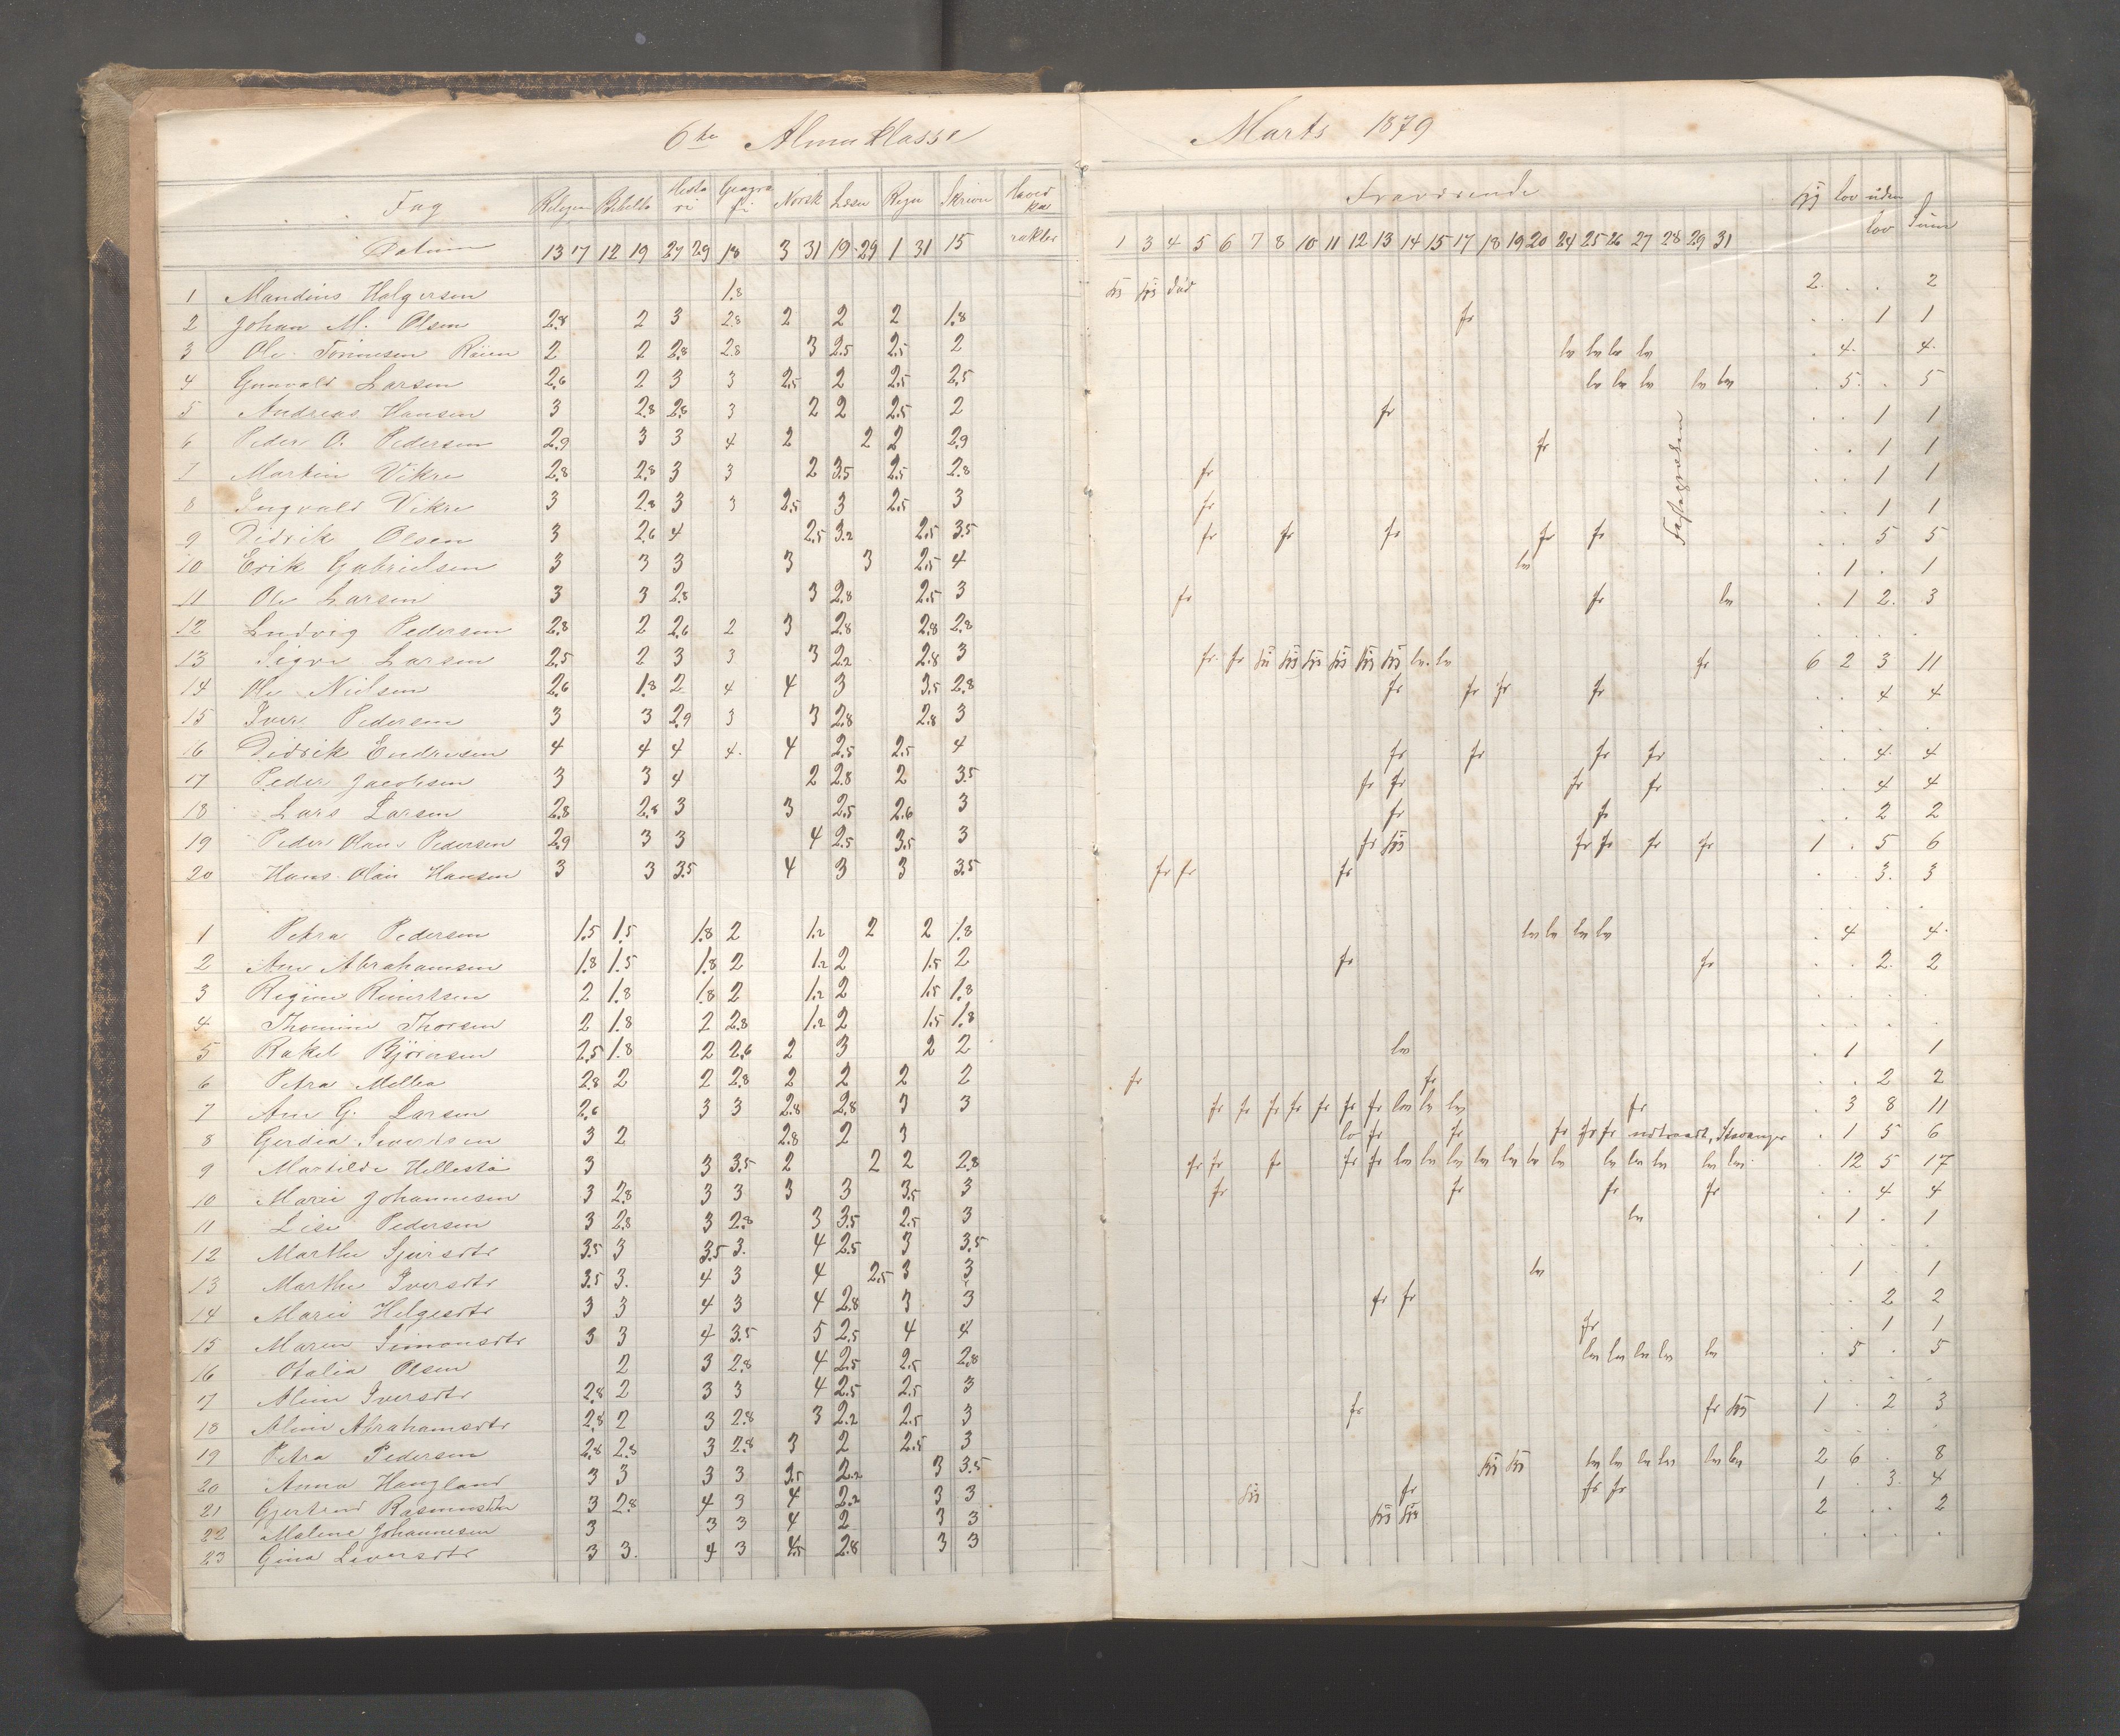 6te Almueklasse Marts 1879
Fag Religion Bibelh Histo ri Geogra fi Norsk Læsn Regn Skrivn Hoved kar rakter Fraværende syg lov uden lov Sum
Datum 13 17 12 19 27 29 18 3 31 19 29 1 31 15 1 3 4 5 6 7 8 10 11 12 13 14 15 17 18 19 20 24 25 26 27 28 29 31
1 Mandius Holgersen 1.8 syg syg död 2 . . 2
2 Johan M. Olsen 2.8 2 3 2.8 2 2 2 1.8 fr . . 1 1
3 Ole Tönnesen 2 2 2.8 2.8 3 2.5 2.5 2 lov lov lov lov . 4. 4.
4 Gunvald Larsen 2.6 2 3 3 2.5 2 2.5 2.5 lov lov lov lov lov . 5. . 5
5 Andreas Hansen 3 2.8 2.8 3 2 2 2.5 2 fr . . 1 1
6 Peder O. Pedersen 2.9 3 3 4 2 2 2 2.9 fr . . 1 1
7 Martin Vikre 2.8 2.8 3 3 2 3.5 2.5 2.8 fr . . 1 1
8 Ingvald Vikre 3 2.8 3 3 2.5 3 2.5 3 fr . . 1 1
9 Didrik Olsen 3 2.6 4 2.5 3.2 2.5 3.5 fr fr fr fr fr . . 5 5
10 Erik Gabrielsen 3 3 3 3 3 2.5 4 lov . 1 . 1
11 Ole Larsen 3 3 2.8 3 2.8 2.5 3 fr fr lov . 1 2. 3
12 Ludvig Pedersen 2.8 2 2.6 2 3 2.8 2.8 2.8 . . . .
13 Sigve Larsen 2.5 2 3 3 3 2.2 2.8 3 fr fr syg syg syg syg syg syg lov lov fr 6 2 3 11
14 Ole Nielsen 2.6 1.8 2 4 4 3 3.5 2.8 fr fr fr fr . . 4 4
15 Iver Pedersen 3 3 2.9 3 3 2.8 2.8 3 . . . .
16 Didrik Endresen 4 4 4 4. 4 2.5 2.5 4 fr fr fr fr . . 4 4
17 Peder Jacobsen 3 3 4 2 2.8 2 3.5 fr fr fr fr . . 4 4
18 Lars Larsen 2.8 2.8 3 3 2.5 2.6 3 fr fr . . 2 2
19 Peder Olaus Pedersen 2.9 3 3 4 2.5 3.5 3 fr syg fr fr fr fr 1 . 5 6
20 Hans Olai Hansen 3 3 3.5 4 3 3 3.5 fr fr fr . . 3. 3
. . . .
1 Petra Pedersen 1.5 1.5 1.8 2 1.2 2 2 1.8 lov lov lov lov . 4 4.
2 Ane Abrahamsen 1.8 1.5 1.8 2 1.2 2 1.5 2 fr fr . . 2. 2
3 Regine Reinertsen 2 1.8 1.8 2 1.2 2 1.5 1.8 . . . .
4 Thomine Thorsen 2 1.8 2 2.8 1.2 2 1.5 1.8 . . . .
5 Rakel Björnsen 2.5 1.8 2 2.6 2 3 2 2 lov . 1 1
6 Petra Milba 2.8 2 2 2.8 2 2 2 2 fr fr . . 2 2
7 Ane G. Larsen 2.6 3 3 2.8 2.8 3 3 fr fr fr fr fr fr fr lov lov lov fr . 3 8 11
8 Gerdia Sivertsen 3 2 2.8 2 3 lov fr fr fr fr fr udtraadt, Stavanger . 1 5 6
9 Martilde Hellestö 3 3 3.5 2 2 2 2.8 fr fr fr fr fr lov lov lov lov lov lov lov lov lov lov lov lov . 12 5 17
10 Marie Johannesen 3 2.8 3 3 3 3 3.5 3 fr fr fr fr . . 4 4
11 Lise Pedersen 3 2.8 3 2.8 3 3.5 2.5 3 lov . 1 . 1
12 Marthe Sjursdtr 3.5 3 3.5 3. 4 2.5 3 3.5 . . . .
13 Marthe Iversdtr 3.5 3. 4 3 4 2.5 3 3 lov . 1 . 1
14 Marie Helgesdtr 3 3 4 3 4 2.8 3 3 fr fr . . 2 2
15 Maren Simonsdtr 3 3 4 3.5 5 2.5 4 4 fr . . 1 1
16 Otalia Olsen 2 3 2.8 4 2.5 2.5 2.8 lov lov lov lov lov . 5 . 5
17 Aline Iversdtr 2.8 2 3 3 4 2.5 2.5 3 . . . .
18 Aline Abrahamsdtr 2.8 2 3 2.8 3 2.2 2.5 3 fr fr syg 1 . 2 3
19 Petra Pedersen 2.8 2.8 3 2.8 3 2 2.5 3 . . . .
20 Anna Haugland 3 3 3 3 3.5 2.2 3 3.5 syg syg lov lov lov lov lov lov 2 6 . 8
21 Gjertrud Rasmusdtr 3 2.8 4 3 4 2.2 3 3 syg fr fr fr 1 . 3. 4
22 Malene Johannesen 3 3 3 4 2 3 3 syg syg 2 . . 2
23 Gina Siversdtr 3 3. 4 3 4.5 2.8 3 3 . . . .